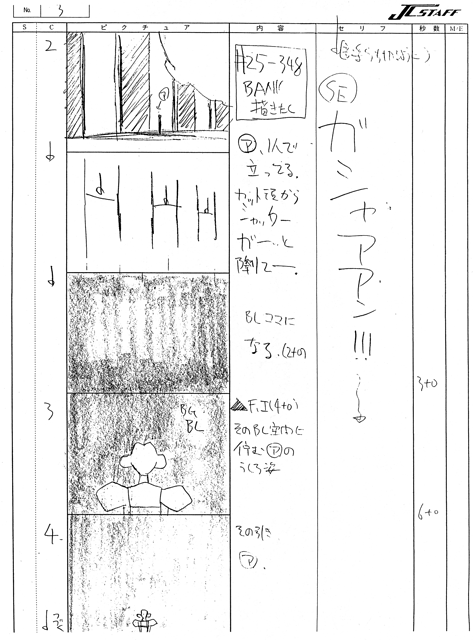 No. 3
J.C.STAFF
S C ピクチュア 内容 セリフ 秒数 M・E
2
ア
#25-348
BANK
描きたし
SE
ガシャアアン!!!
ア、1人で
立ってる。
カット頭から
シャッター
ガーッと
降りてー。
BLコマに
なる。(2+0)
3+0
3
BG
BL
F.I(4+0)
そのBL空間に
佇むアの
うしろ姿
6+0
4
その引き
ア.